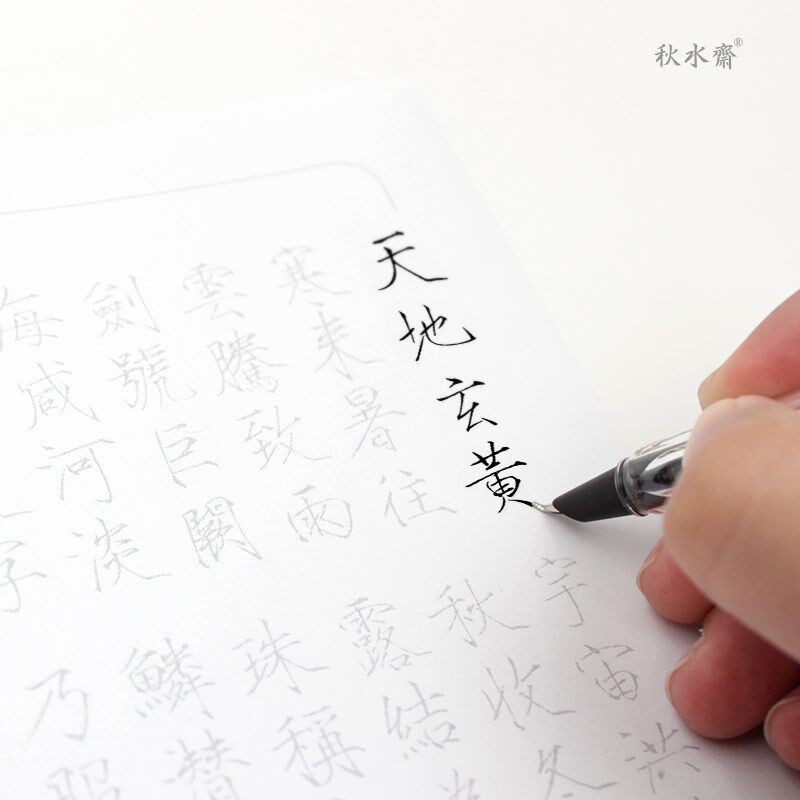 秋水齋®
天地玄黃
寒来暑往
雲騰致雨
劍號巨闕
海咸河淡
字
宇宙洪
秋收冬
露結
珠稱
鱗潛
乃服